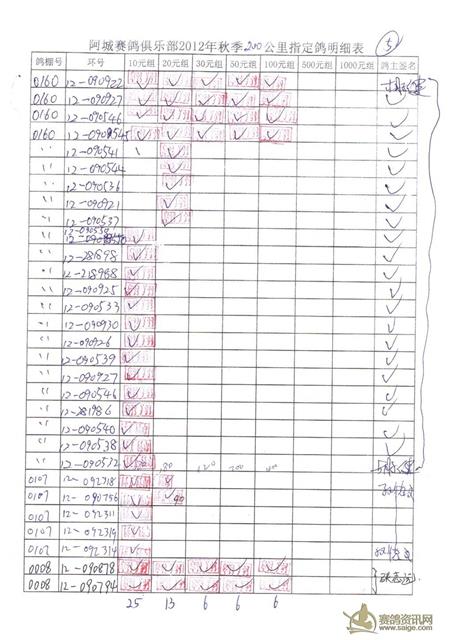 阿城赛鸽俱乐部2012年秋季200公里指定鸽明细表
5
鸽棚号 环号 10元组 20元组 30元组 50元组 100元组 500元组 1000元组 鸽主签名
0160 12-090922
0160 12-090927
0160 12-090546
0160 12-090545
" 12-090541
" 12-090544
" 12-090536
" 12-090921
" 12-090537
" 12-090550
" 12-281898
" 12-218988
" 12-090925
" 12-090533
" 12-090930
" 12-090926
" 12-090539
" 12-090927
" 12-090546
" 12-281986
" 12-090540
" 12-090538
" 12-090532
0107 12-092318
0107 12-090756 90
0107 12-092311
0107 12-092319
0107 12-092314
0008 12-090878
0008 12-090794
25 13 6 6 6
赛鸽资讯网
www.saige.com